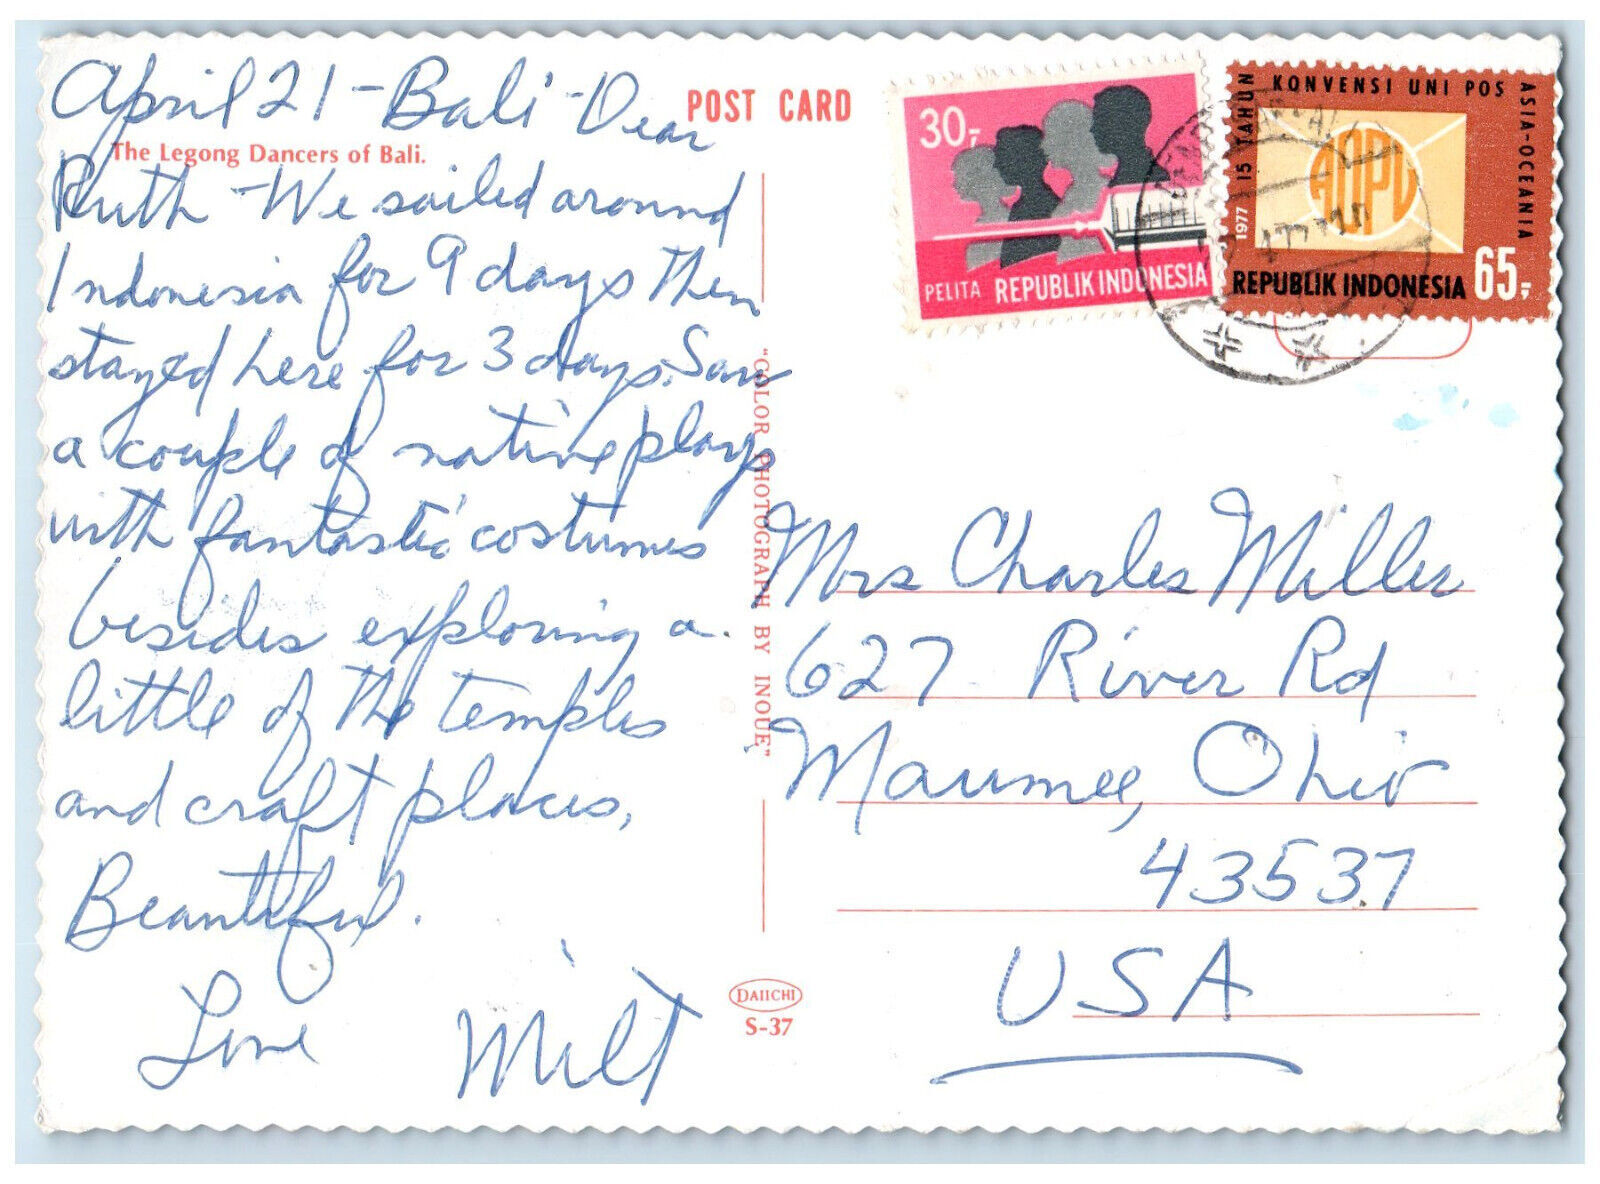 April 21 - Bali - Dear
The Legong Dancers of Bali.
Ruth - We sailed around
Indonesia for 9 days then
stayed here for 3 days. Saw
a couple of native plays
with fantastic costumes
besides exploring a
little of the temples
and craft places,
Beautiful.
Love Milt
POST CARD
"COLOR PHOTOGRAPH BY INOUE"
DAIICHI
S-37
30,-
PELITA REPUBLIK INDONESIA
1977 15 TAHUN KONVENSI UNI POS ASIA-OCEANIA
AOPU
REPUBLIK INDONESIA 65,-
Mrs Charles Miller
627 River Rd
Maumee, Ohio
43537
USA